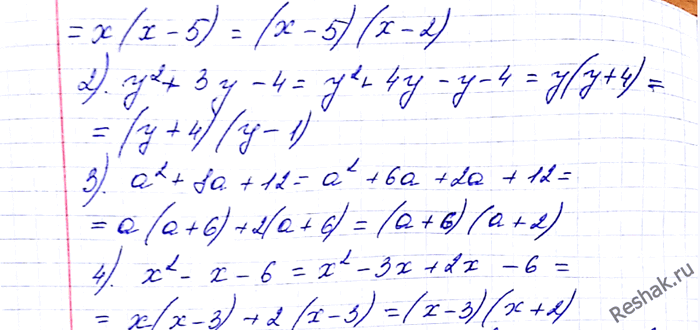 = x(x-5) = (x-5)(x-2)
2). y²+3y-4 = y²+4y-y-4 = y(y+4) =
= (y+4)(y-1)
3). a²+8a+12 = a²+6a+2a+12 =
= a(a+6)+2(a+6) = (a+6)(a+2)
4). x²-x-6 = x²-3x+2x-6 =
= x(x-3)+2(x-3) = (x-3)(x+2)
Reshak.ru